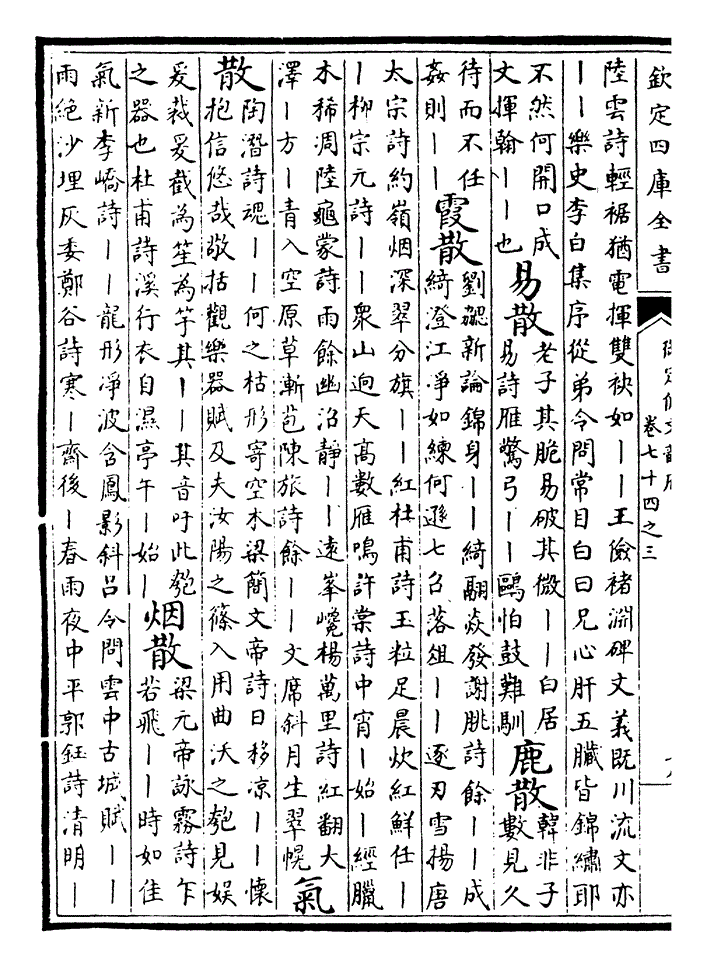 欽定四庫全書
御定佩文韻府
卷七十四之三
陸雲詩輕裾猶電揮雙袂如丨丨王儉褚淵碑文義既川流文亦
丨丨樂史李白集序從弟令問常目白曰兄心肝五臟皆錦繡耶
不然何開口成
文揮翰丨丨也
易散
老子其脆易破其微丨丨白居
易詩雁驚弓丨丨鷗怕鼓難馴
鹿散
韓非子
數見久
待而不任
姦則丨丨
霞散
劉勰新論錦身丨丨綺翮焱發謝朓詩餘丨丨成
綺澄江凈如練何遜七召落俎丨丨逐刃雪揚唐
太宗詩約嶺烟深翠分旗丨丨紅杜甫詩玉粒足晨炊紅鮮任丨
丨柳宗元詩丨丨衆山逈天高數雁鳴許棠詩中宵丨始丨經臘
木稀凋陸龜蒙詩雨餘幽沼靜丨丨遠峯巉楊萬里詩紅翻大
澤丨方丨青入空原草斬苞陳旅詩餘丨丨文席斜月生翠幌
氣
散
陶潛詩魂丨丨何之枯形寄空木梁簡文帝詩日移凉丨丨懷
抱信悠哉敬括觀樂器賦及夫汝陽之篠入用曲沃之匏見娱
爰裁爰截為笙為竽其丨丨其音吁此匏
之器也杜甫詩溪行衣自濕亭午丨始丨
烟散
梁元帝詠霧詩乍
若飛丨丨時如佳
氣新李嶠詩丨丨龍形凈波含鳳影斜吕令問雲中古城賦丨丨
雨絶沙埋灰委鄭谷詩寒丨齋後丨春雨夜中平郭鈺詩清明丨